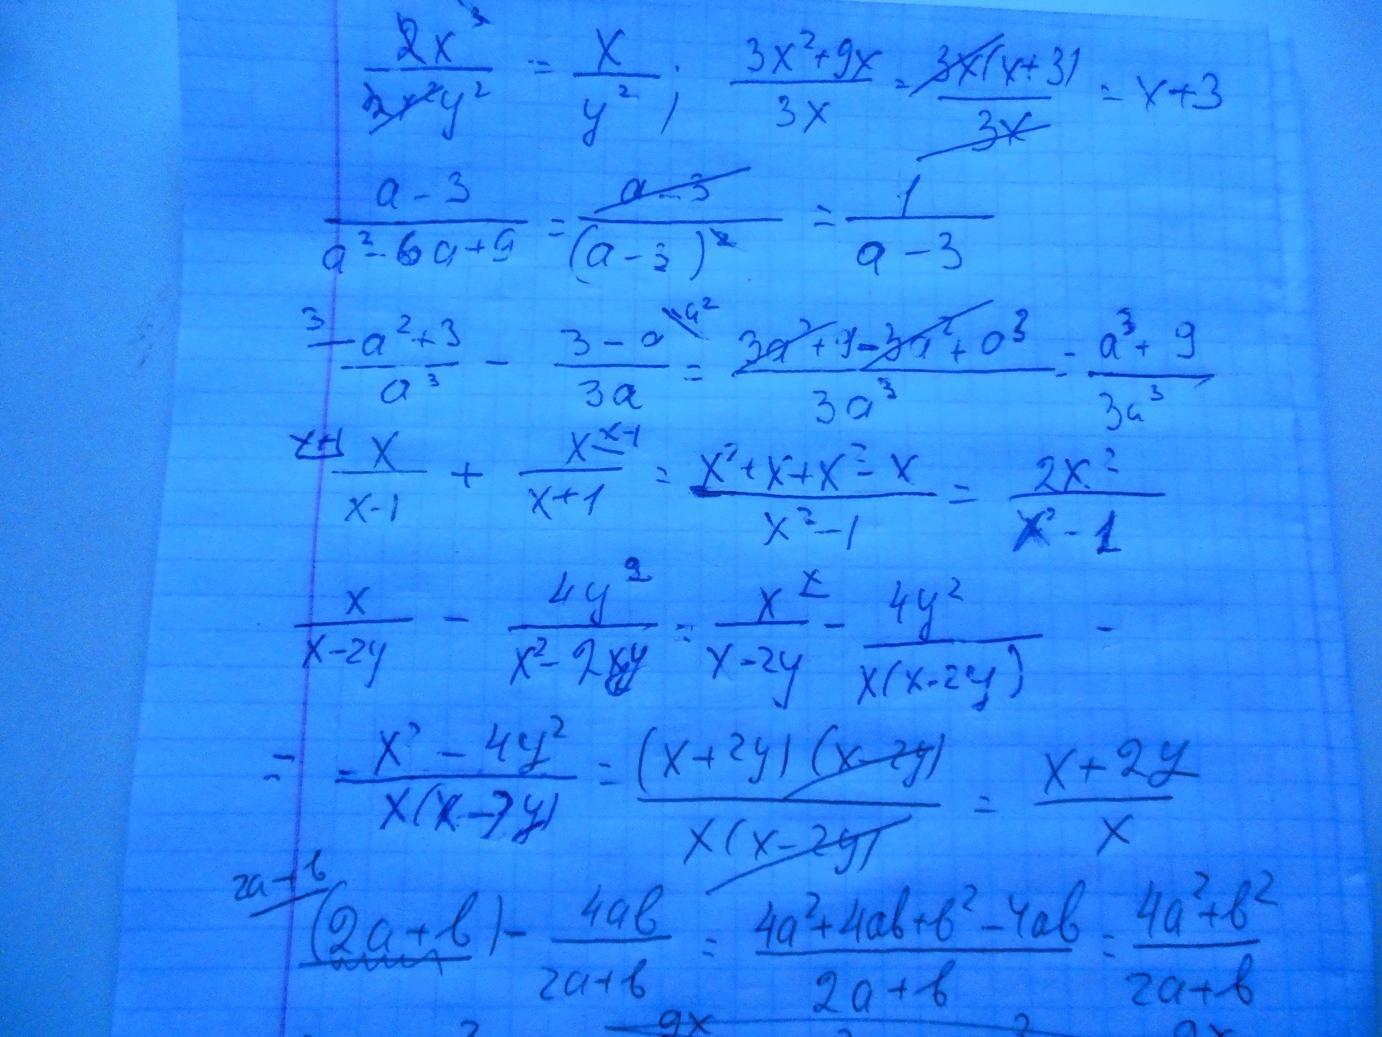 2x³/2x²y² = x/y² ; (3x²+9x)/3x = 3x(x+3)/3x = x+3
(a-3)/(a²-6a+9) = (a-3)/(a-3)² = 1/(a-3)
3 (a²+3)/a³ - (3-a)/3a a² = (3a²+9-3a²+a³)/3a³ = (a³+9)/3a³
x+1 x/(x-1) + x/(x+1) x-1 = (x²+x+x²-x)/(x²-1) = 2x²/(x²-1)
x/(x-2y) - 4y²/(x²-2xy) = x/(x-2y) x - 4y²/x(x-2y) =
= (x²-4y²)/x(x-2y) = (x+2y)(x-2y)/x(x-2y) = (x+2y)/x
2a+b (2a+b) - 4ab/(2a+b) = (4a²+4ab+b²-4ab)/(2a+b) = (4a²+b²)/(2a+b)
9x 9x